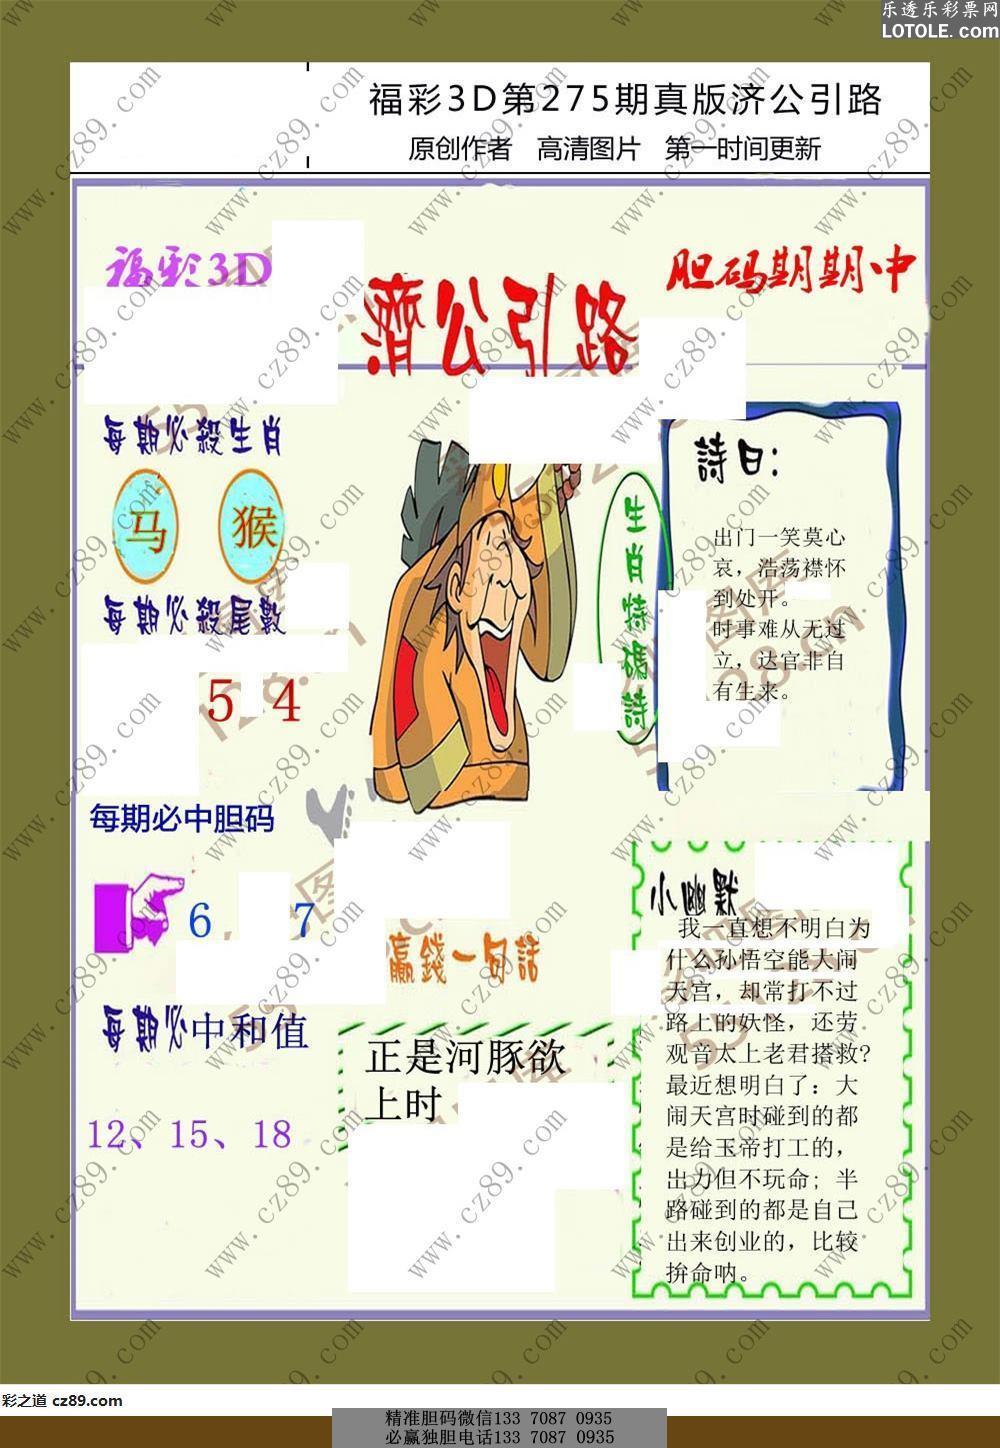 乐透乐彩票网
LOTOLE.com
福彩3D第275期真版济公引路
原创作者 高清图片 第一时间更新
福彩3D
濟公引路
胆码期期中
每期必殺生肖
马 猴
每期必殺尾數
5 4
生肖特碼詩
詩曰：
出门一笑莫心
哀，浩荡襟怀
到处开。
时事难从无过
立，达官非自
有生来。
每期必中胆码
6 7
每期必中和值
12、15、18
赢錢一句話
正是河豚欲
上时
小幽默
我一直想不明白为
什么孙悟空能大闹
天宫，却常打不过
路上的妖怪，还劳
观音太上老君搭救?
最近想明白了：大
闹天宫时碰到的都
是给玉帝打工的，
出力但不玩命；半
路碰到的都是自己
出来创业的，比较
拚命呐。
www.cz89.com
彩之道 cz89.com
精准胆码微信133 7087 0935
必赢独胆电话133 7087 0935